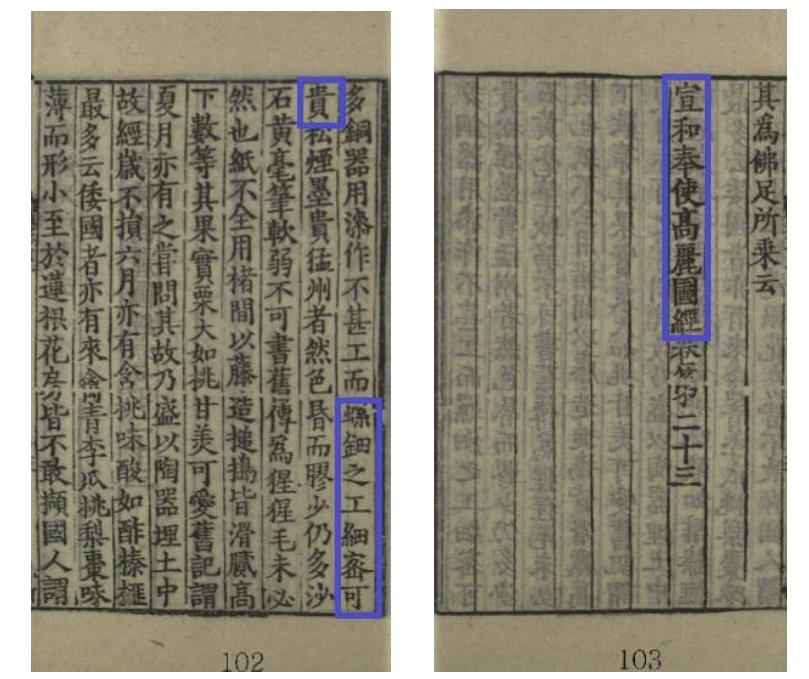 多銅器用漆作不甚工而螺鈿之工細密可
貴松煙墨貴猛州者然色昏而膠少仍多沙
石黃毫筆軟弱不可書舊傳爲猩猩毛未必
然也紙不全用楮間以藤造搥搗皆滑膩高
下數等其果實栗大如挑甘美可愛舊記謂
夏月亦有之嘗問其故乃盛以陶器埋土中
故經歲不損六月亦有含挑味酸如酢榛榧
最多云倭國者亦有來禽青李瓜挑梨棗味
薄而形小至於蓮根花房皆不敢擷國人謂
102
其爲佛足所乗云
宣和奉使高麗國經卷第二十三
103